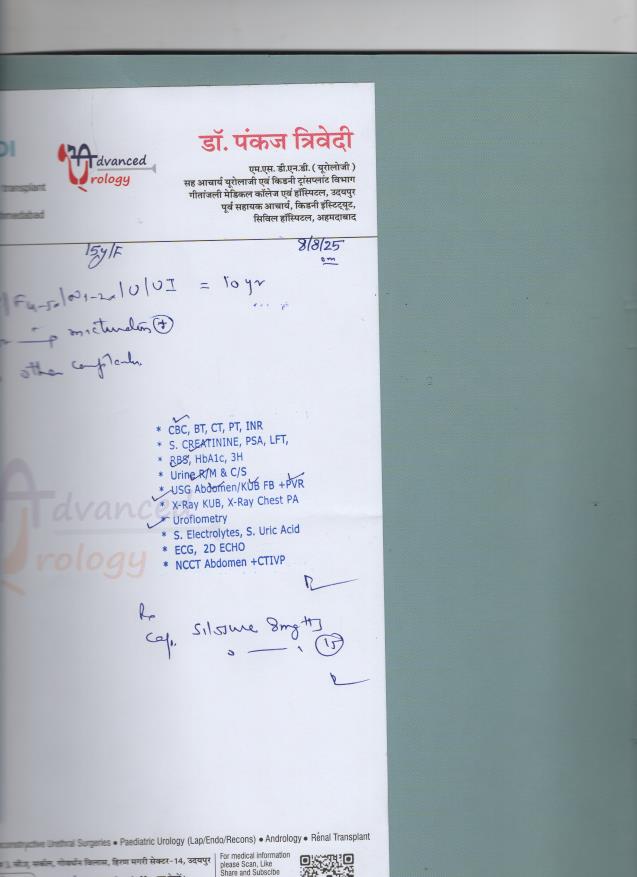 DI
Advanced
Urology
transplant
hmedabad
डॉ. पंकज त्रिवेदी
एम.एस. डी.एन.बी. ( यूरोलोजी )
सह आचार्य यूरोलाजी एवं किडनी ट्रांसप्लांट विभाग
गीतांजली मेडिकल कॉलेज एवं हॉस्पिटल, उदयपुर
पूर्व सहायक आचार्य, किडनी इंस्टिट्यूट,
सिविल हॉस्पिटल, अहमदाबाद
15y/F
8/8/25
/U/UI = 10 yr
micturition +
other complaints
* CBC, BT, CT, PT, INR
* S. CREATININE, PSA, LFT,
* RBS, HbA1c, 3H
* Urine R/M & C/S
* USG Abdomen/KUB FB +PVR
* X-Ray KUB, X-Ray Chest PA
* Uroflometry
* S. Electrolytes, S. Uric Acid
* ECG, 2D ECHO
* NCCT Abdomen +CTIVP
Advanced
Urology
Rx
Cap. 8mg
15
econstructive Urethral Surgeries • Paediatric Urology (Lap/Endo/Recons) • Andrology • Renal Transplant
सर्कल, गोवर्धन विलास, हिरण मगरी सेक्टर-14, उदयपुर
For medical information
please Scan, Like
Share and Subscibe